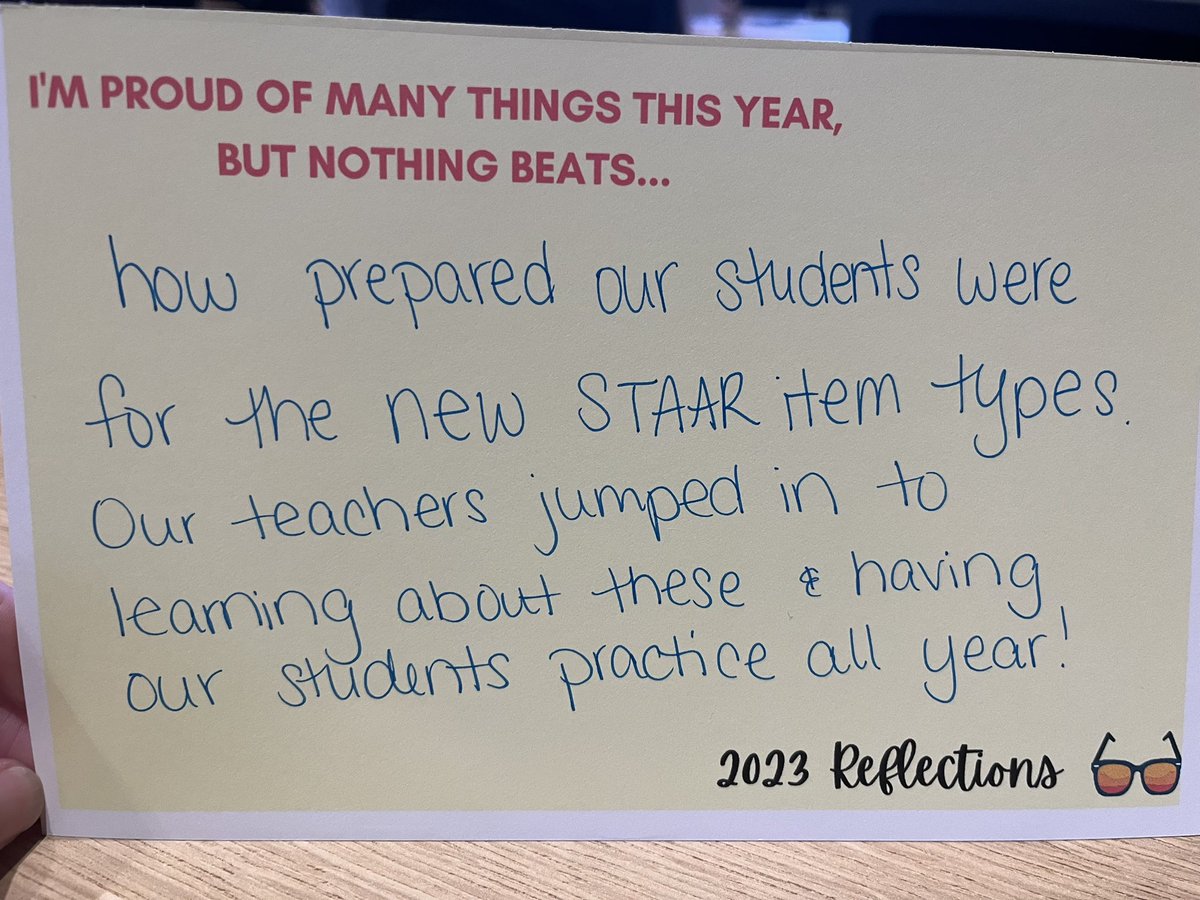 I'M PROUD OF MANY THINGS THIS YEAR,
BUT NOTHING BEATS...
how prepared our students were
for the new STAAR item types.
Our teachers jumped in to
learning about these & having
our students practice all year!
2023 Reflections